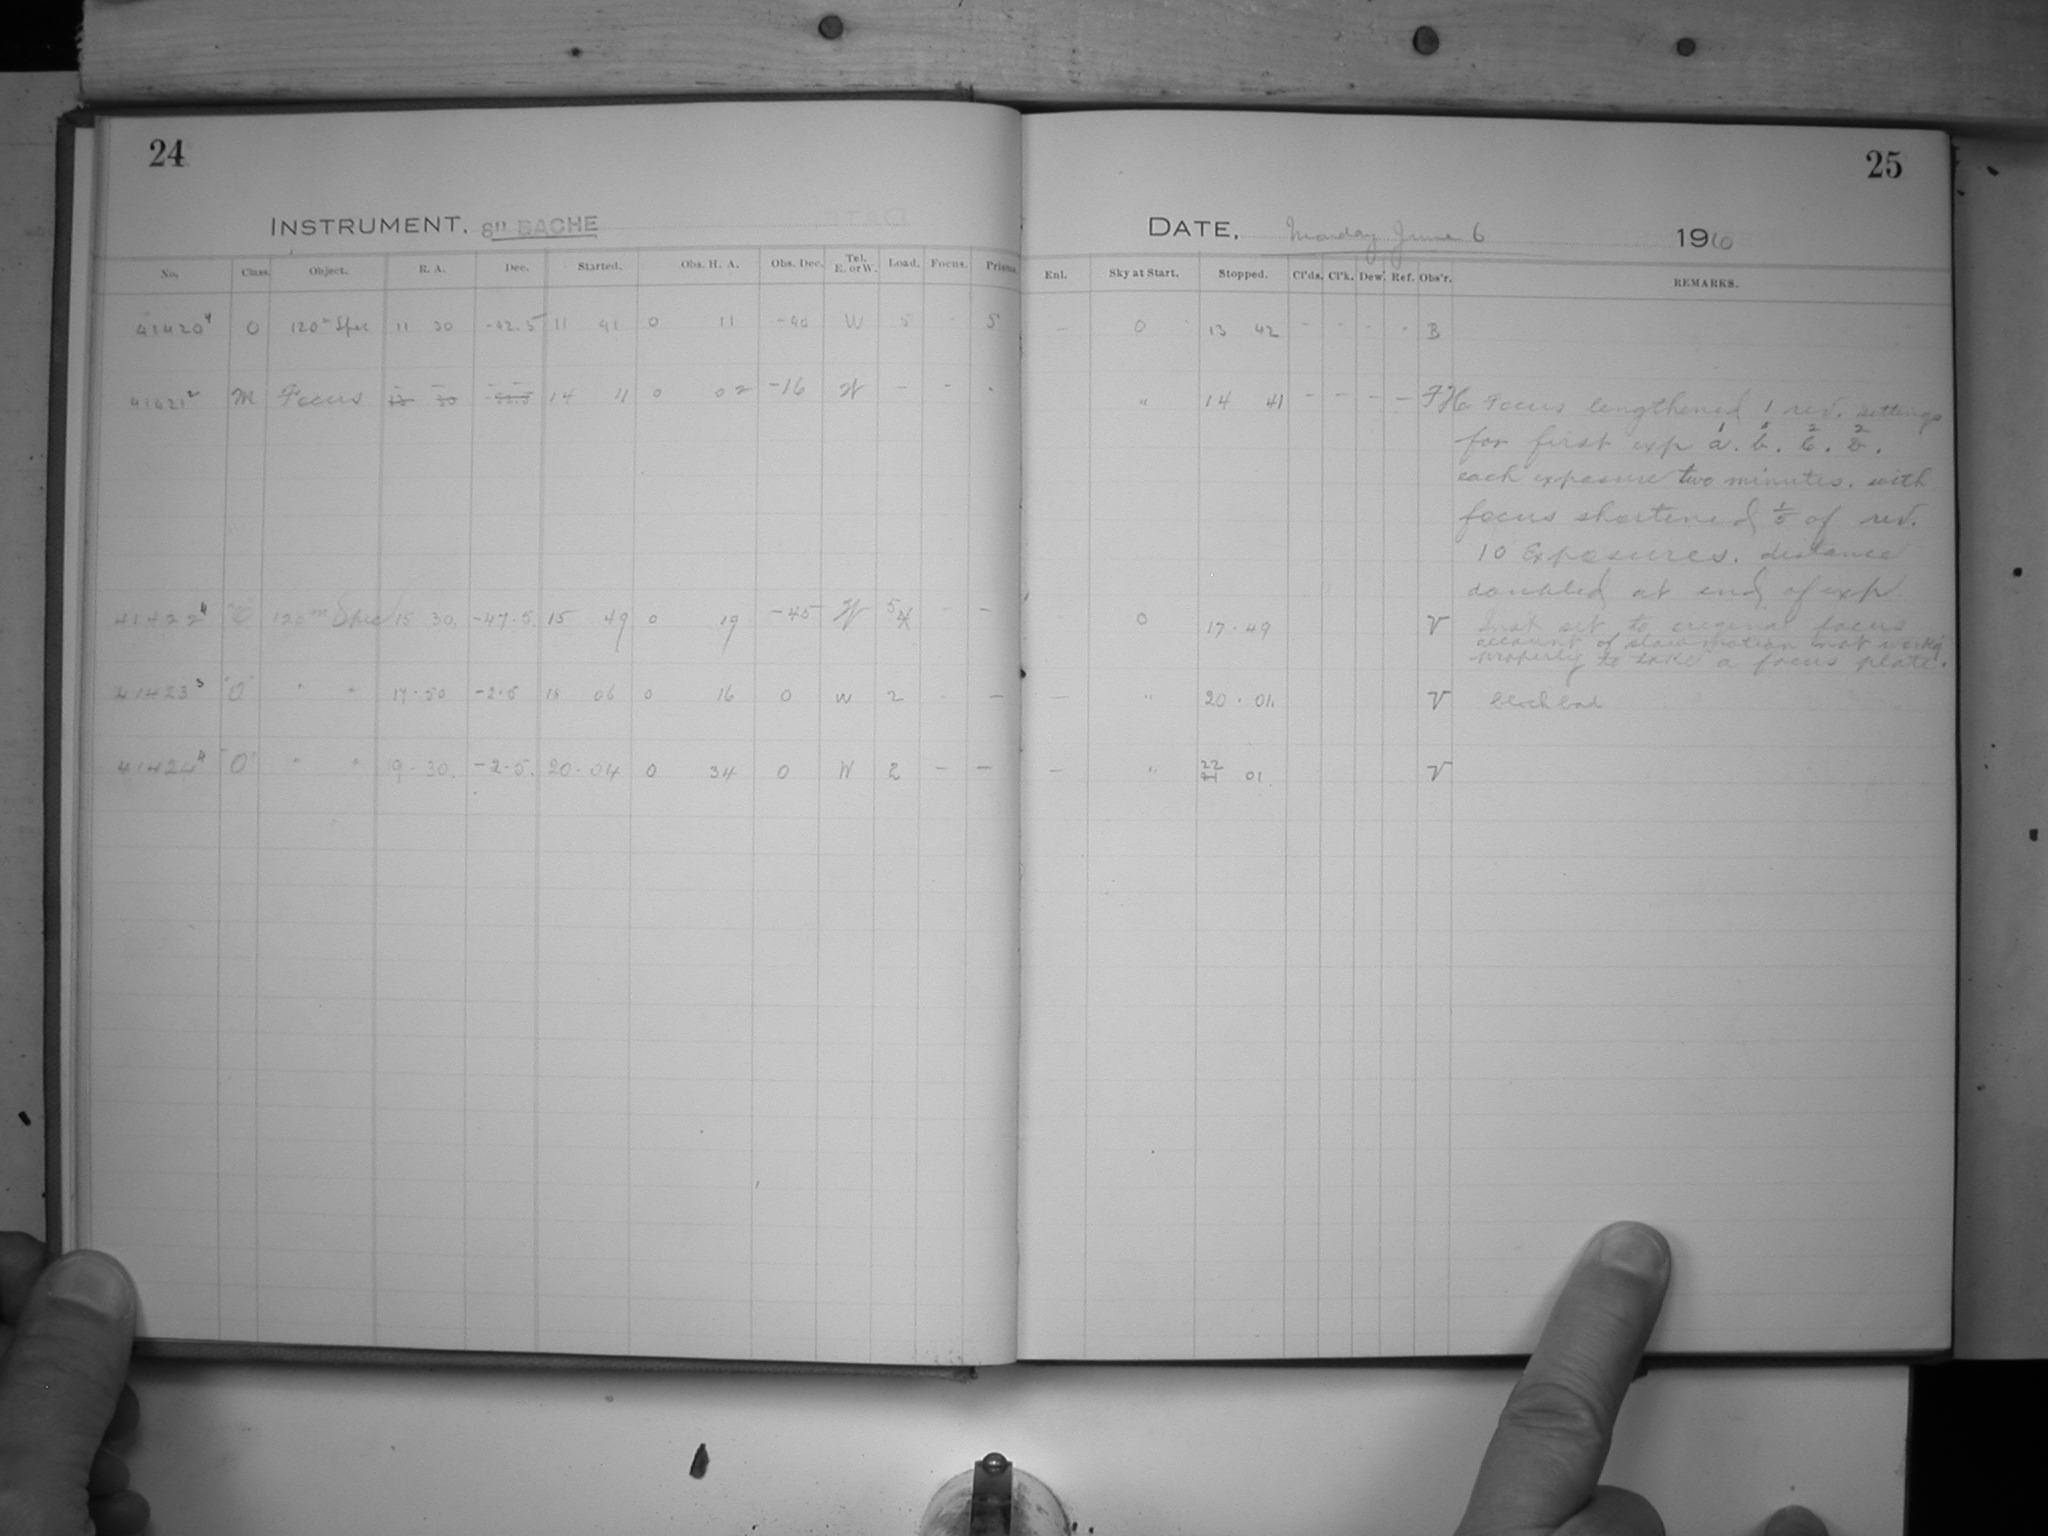 24
25
INSTRUMENT. 8" BACHE
DATE, Monday June 6 1910
No. Class. Object. R. A. Dec. Started. Obs. H. A. Obs. Dec. Tel. E. or W. Load. Focus. Prisms. Enl. Sky at Start. Stopped. Cl'ds. Cl'k. Dew. Ref. Obs'r. REMARKS.
41420 4 O 120m Spec 11 30 -42.5 11 41 0 11 -40 W 5 - 5 - 0 13 42 - - - - B
41421 2 M Focus 14 11 0 02 -16 W - - - " 14 41 - - - - Focus lengthened 1 rev. settings
for first exp
each exposure two minutes. with
focus shortened 1/5 of rev.
10 Exposures. distance
doubled at end of exp.
41422 4 "O" 120m Spec 15 30. -47.5. 15 49 0 19 -45 W 5 - - 0 17.49 V Inst set to original focus
account of slow motion not work'g
properly to take a focus plate.
41423 3 "O" " " 17.50 -2.5 18 06 0 16 0 W 2 - - - " 20.01. V clock bad
41424 4 "O" " " 19.30. -2.5. 20.04 0 34 0 W 2 - - - " 22 01 V